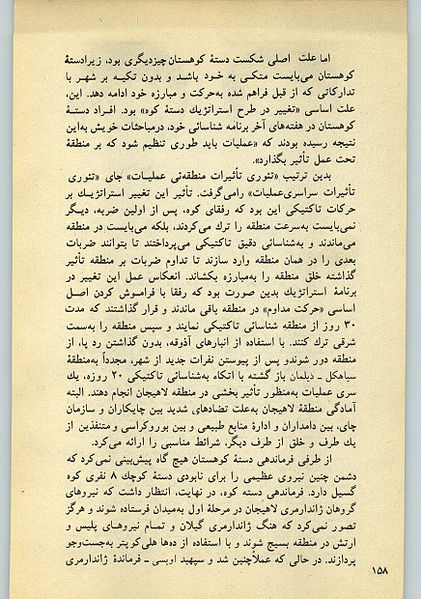 اما علت اصلی شکست دستهٔ کوهستان چیز دیگری بود، زیرا دستهٔ
کوهستان می‌بایست متکی به خود باشد و بدون تکیه بر شهر با
تدارکاتی که از قبل فراهم شده به‌حرکت و مبارزه خود ادامه دهد. این،
علت اساسی «تغییر در طرح استراتژیك دستهٔ کوه» بود. افراد دستهٔ
کوهستان در هفته‌های آخر برنامه شناسائی خود، درمباحثات خویش به‌این
نتیجه رسیده بودند که «عملیات باید طوری تنظیم شود که بر منطقهٔ
تحت عمل تأثیر بگذارد».
بدین ترتیب «تئوری تأثیرات منطقه‌ئی عملیات» جای «تئوری
تأثیرات سراسری‌عملیات» رامی‌گرفت. تأثیر این تغییر استراتژیك بر
حرکات تاکتیکی این بود که رفقای کوه، پس از اولین ضربه، دیگر
نمی‌بایست به‌سرعت منطقه را ترك می‌کردند، بلکه می‌بایست در منطقه
می‌ماندند و به‌شناسائی دقیق تاکتیکی می‌پرداختند تا بتوانند ضربات
بعدی را در همان منطقه وارد سازند تا تداوم ضربات بر منطقه تأثیر
گذاشته خلق منطقه را به‌مبارزه بکشاند. انعکاس عمل این تغییر در
برنامهٔ استراتژیك بدین صورت بود که رفقا با فراموش کردن اصل
اساسی «حرکت مداوم» در منطقه باقی ماندند و قرار گذاشتند که مدت
۳۰ روز از منطقه شناسائی تاکتیکی نمایند و سپس منطقه را به‌سمت
شرقی ترك کنند. با استفاده از انبارهای آذوقه، بدون گذاشتن رد پا، از
منطقه دور شوندو پس از پیوستن نفرات جدید از شهر، مجدداً به‌منطقهٔ
سیاهکل ـ دیلمان باز گشته با اتکاء به‌شناسائی تاکتیکی ۲۰ روزه، یك
سری عملیات به‌منظور تأثیر بخشی در منطقه لاهیجان انجام دهند. البته
آمادگی منطقهٔ لاهیجان به‌علت تضادهای شدید بین چایکاران و سازمان
چای، بین دامداران و ادارهٔ منابع طبیعی و بین بوروکراسی و متنفذین از
یك طرف و خلق از طرف دیگر، شرائط مناسبی را ارائه می‌کرد.
از طرفی فرماندهی دستهٔ کوهستان هیچ گاه پیش‌بینی نمی‌کرد که
دشمن چنین نیروی عظیمی را برای نابودی دستهٔ کوچك ۸ نفری کوه
گسیل دارد. فرماندهی دسته کوه، در نهایت، انتظار داشت که نیروهای
گروهان ژاندارمری لاهیجان در مرحلهٔ اول به‌میدان فرستاده شوند و هرگز
تصور نمی‌کرد که هنگ ژاندارمری گیلان و تمام نیروهای پلیس و
ارتش در منطقه بسیج شوند و با استفاده از ده‌ها هلی‌کوپتر به‌جست‌وجو
پردازند. در حالی که عملاًچنین شد و سپهبد اویسی ـ فرماندهٔ ژاندارمری
۱۵۸